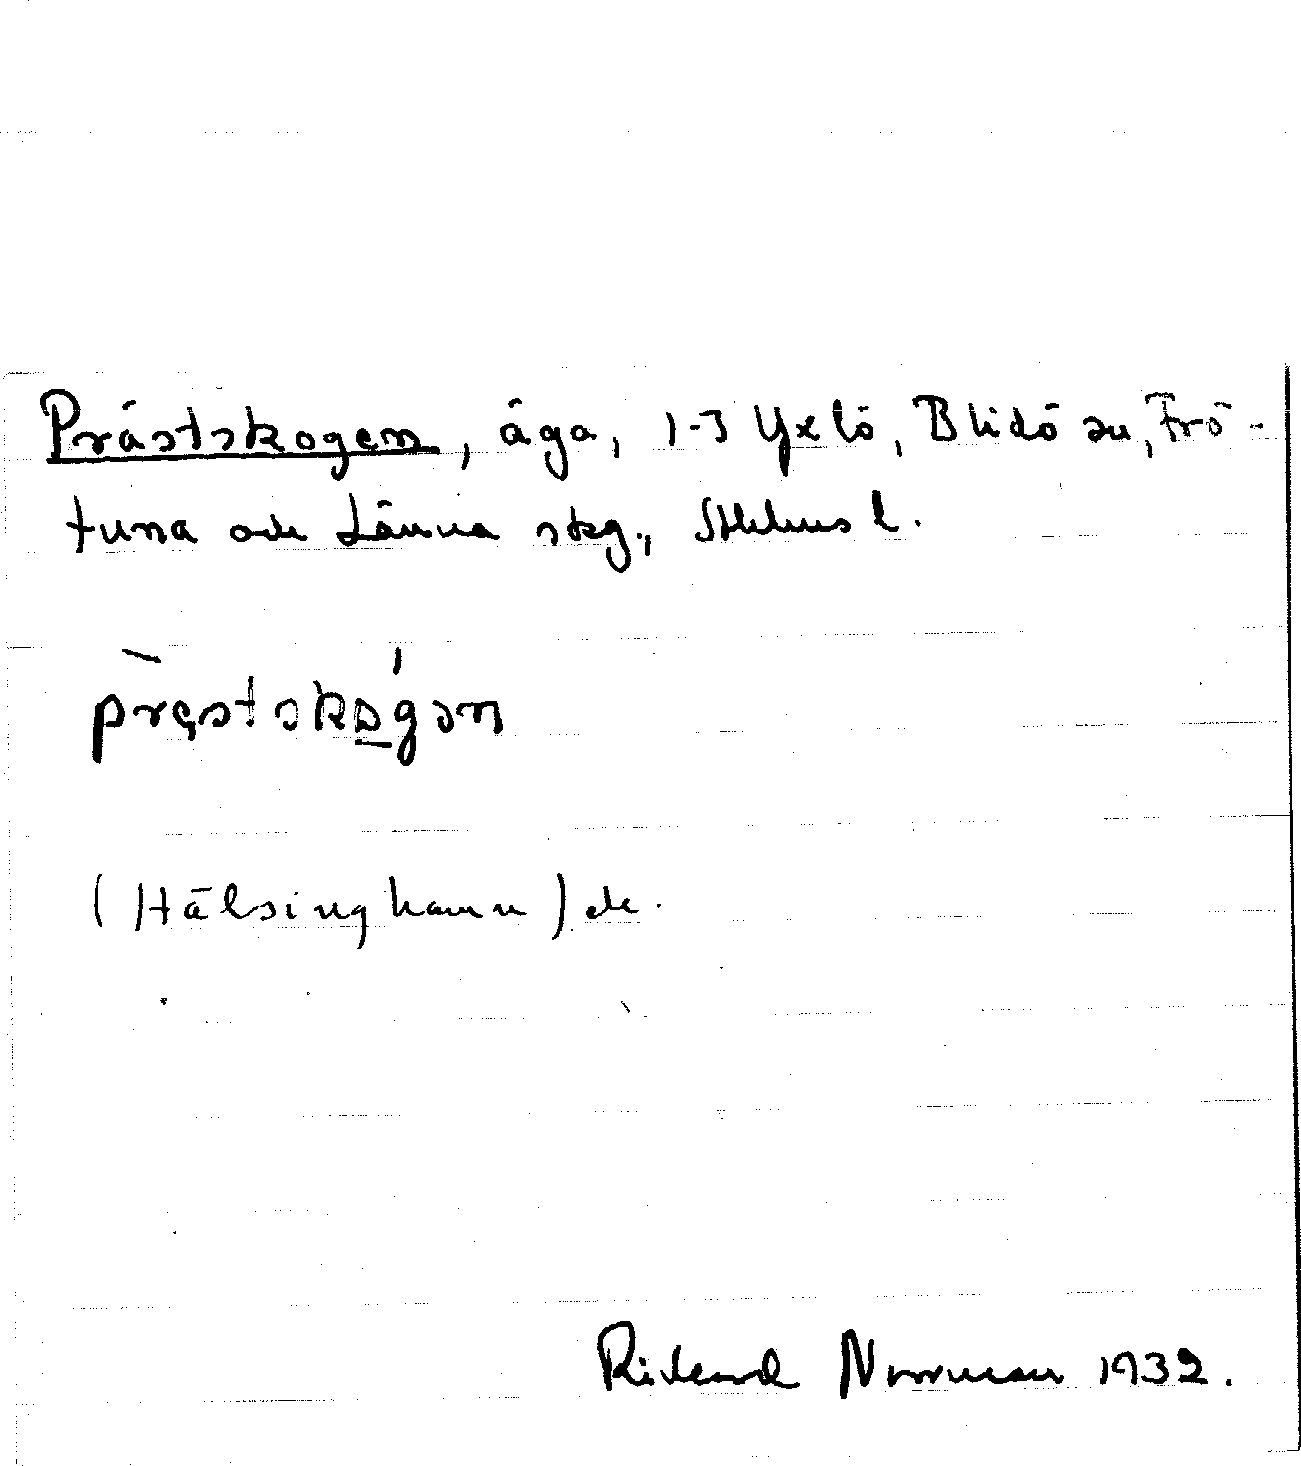 Prästskogen, äga, 1-3 Yxlö, Blidö sn, Frö-
tuna och Länna skg., Sthlms l.
pręstskǫgən
(Hälsinghamn) ek.
Rickard Norrman 1932.